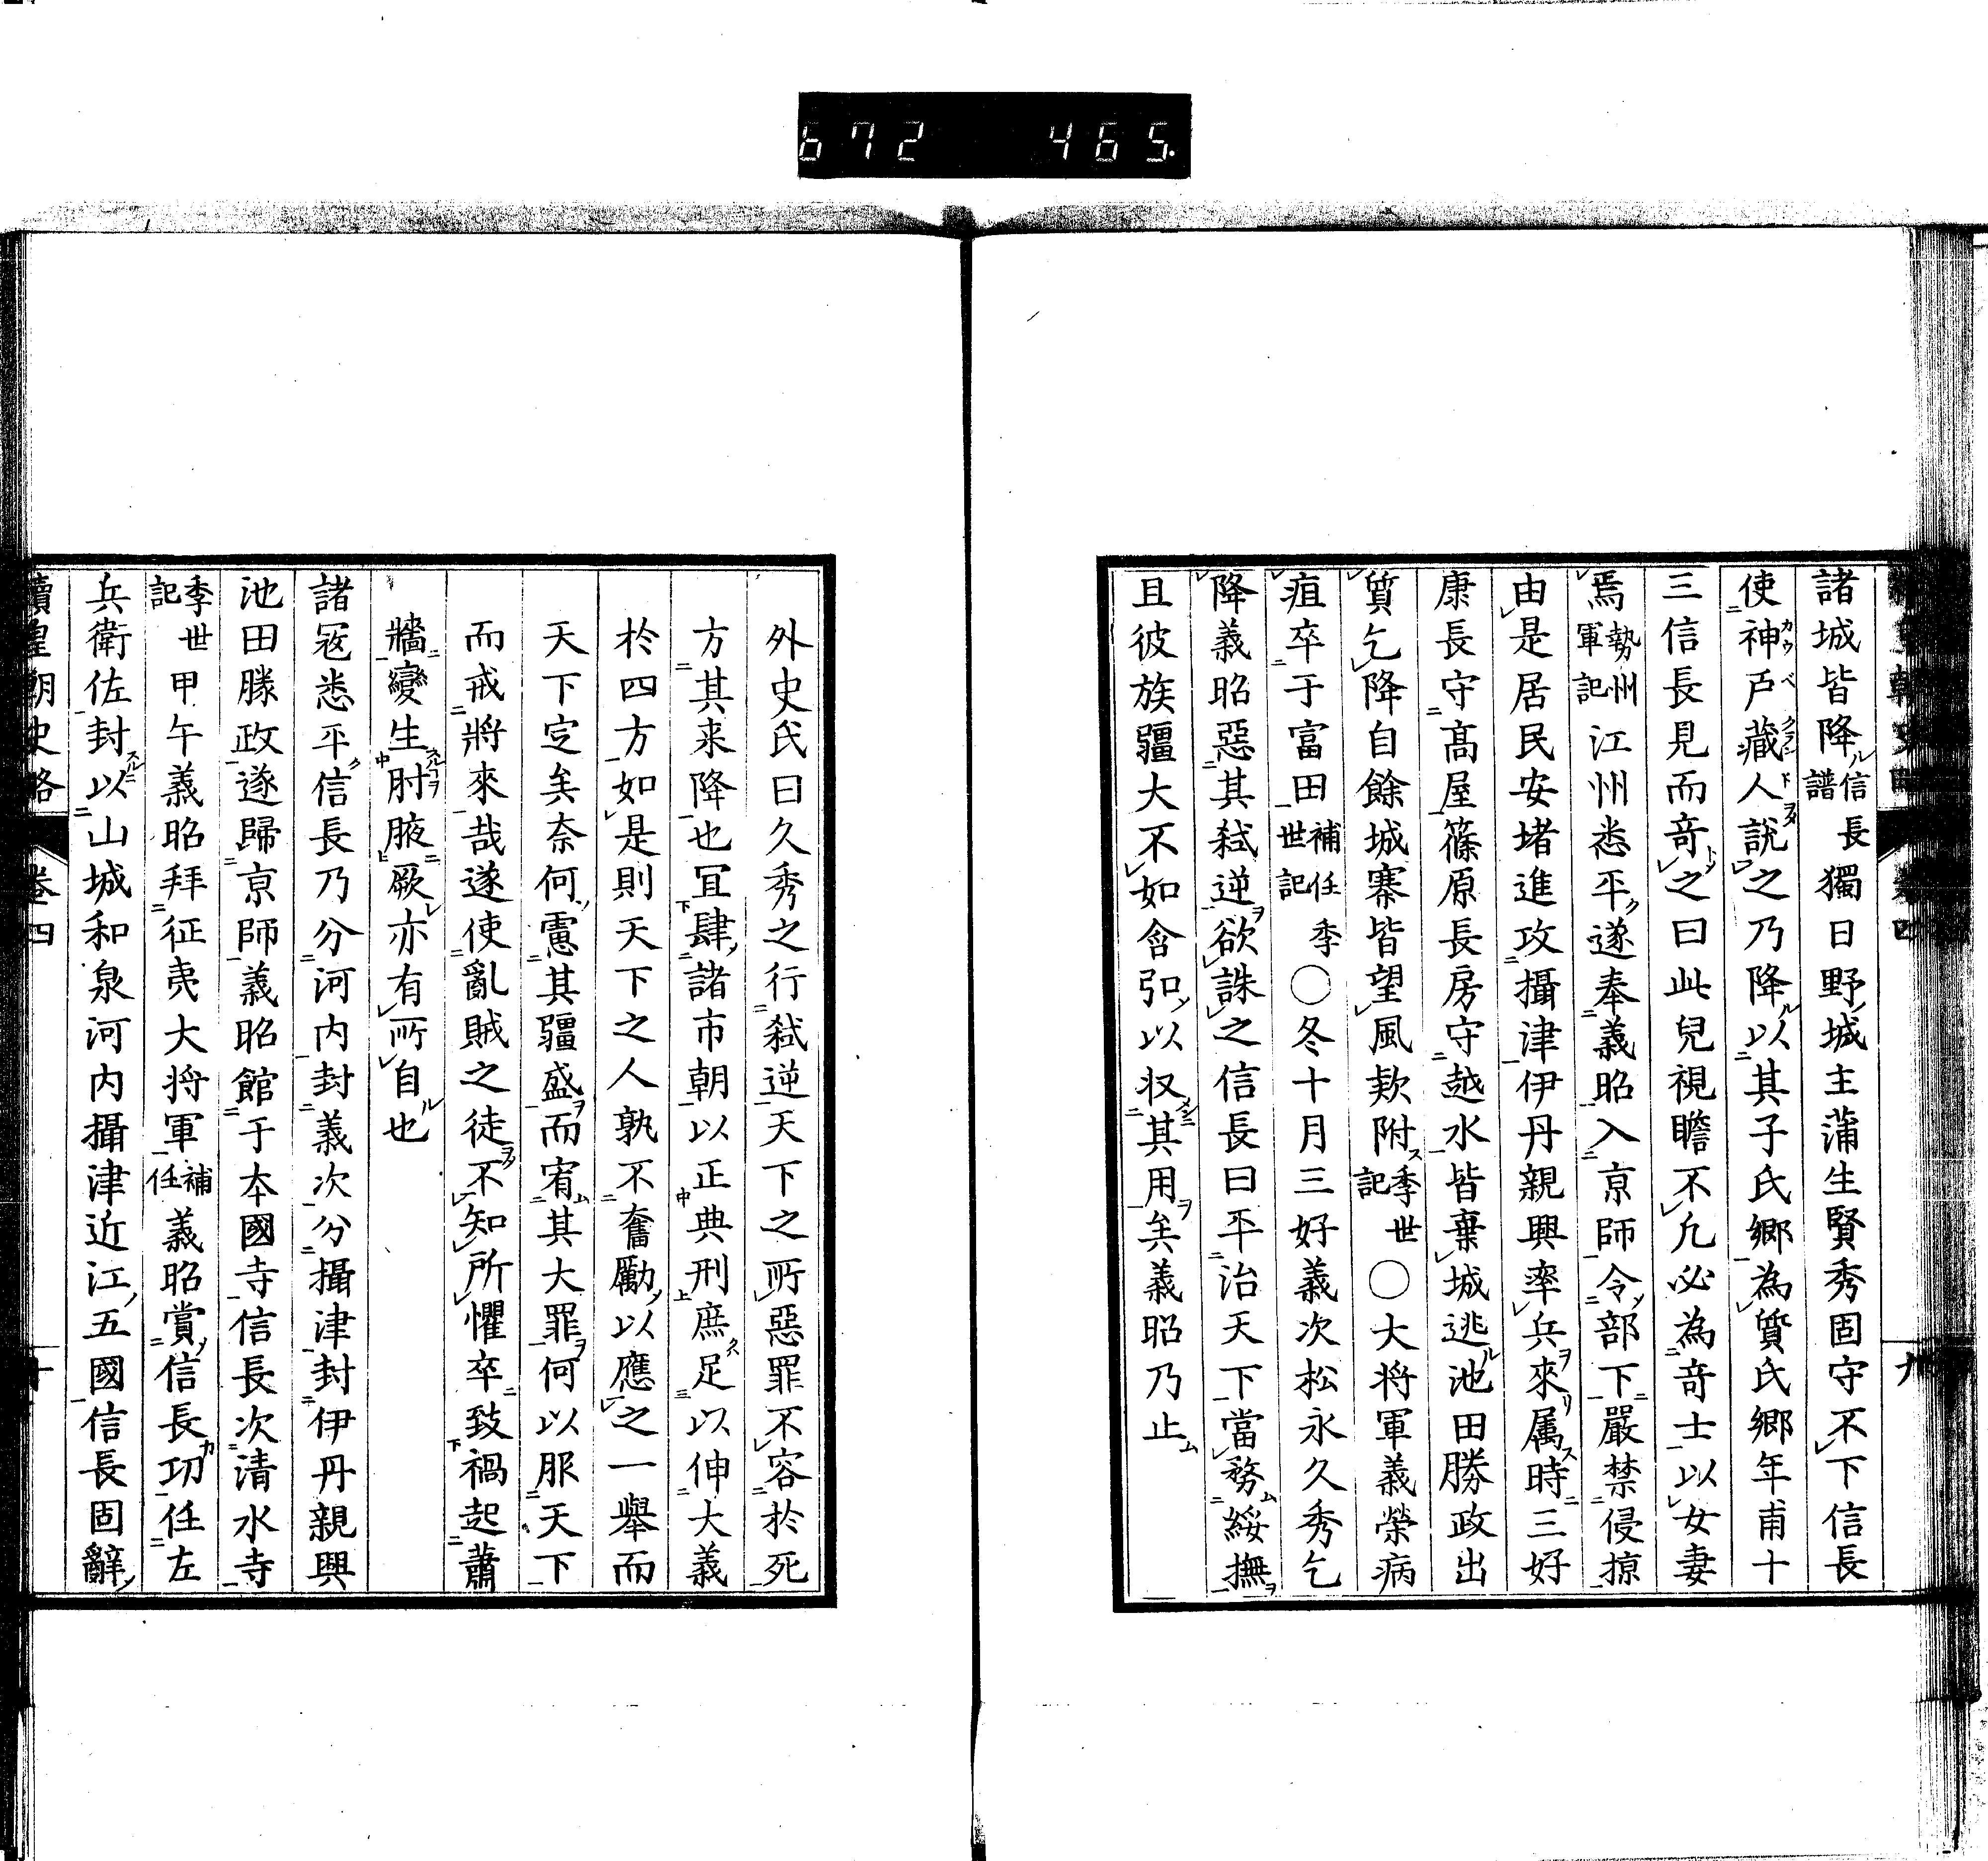 672 465
諸城皆降信長譜獨日野城主蒲生賢秀固守不下信長
使神戸藏人説之乃降以其子氏郷為質氏郷年甫十
三信長見而竒之曰此兒視瞻不凢必為竒士以女妻
焉勢州軍記江州悉平遂奉義昭入京師令部下嚴禁侵掠
由是居民安堵進攻攝津伊丹親興率兵來属時三好
康長守髙屋篠原長房守越水皆棄城逃池田勝政出
質乞降自餘城寨皆望風欵附季世記〇大将軍義榮病
疽卒于富田補任季世記〇冬十月三好義次松永久秀乞
降義昭惡其弑逆欲誅之信長曰平治天下當務綏撫
且彼族疆大不如含弘以収其用矣義昭乃止
外史氏曰久秀之行弑逆天下之所惡罪不容於死
方其来降也冝肆諸市朝以正典刑庶足以伸大義
於四方如是則天下之人孰不奮勵以應之一舉而
天下定矣奈何慮其疆盛而宥其大罪何以服天下
而戒將來哉遂使亂賊之徒不知所懼卒致禍起蕭
牆變生肘腋厥亦有所自也
諸冦悉平信長乃分河内封義次分攝津封伊丹親興
池田勝政遂歸京師義昭館于本國寺信長次清水寺
季世記甲午義昭拜征夷大将軍補任義昭賞信長功任左
兵衛佐封以山城和泉河内攝津近江五國信長固辭
續皇朝史略 卷四 十